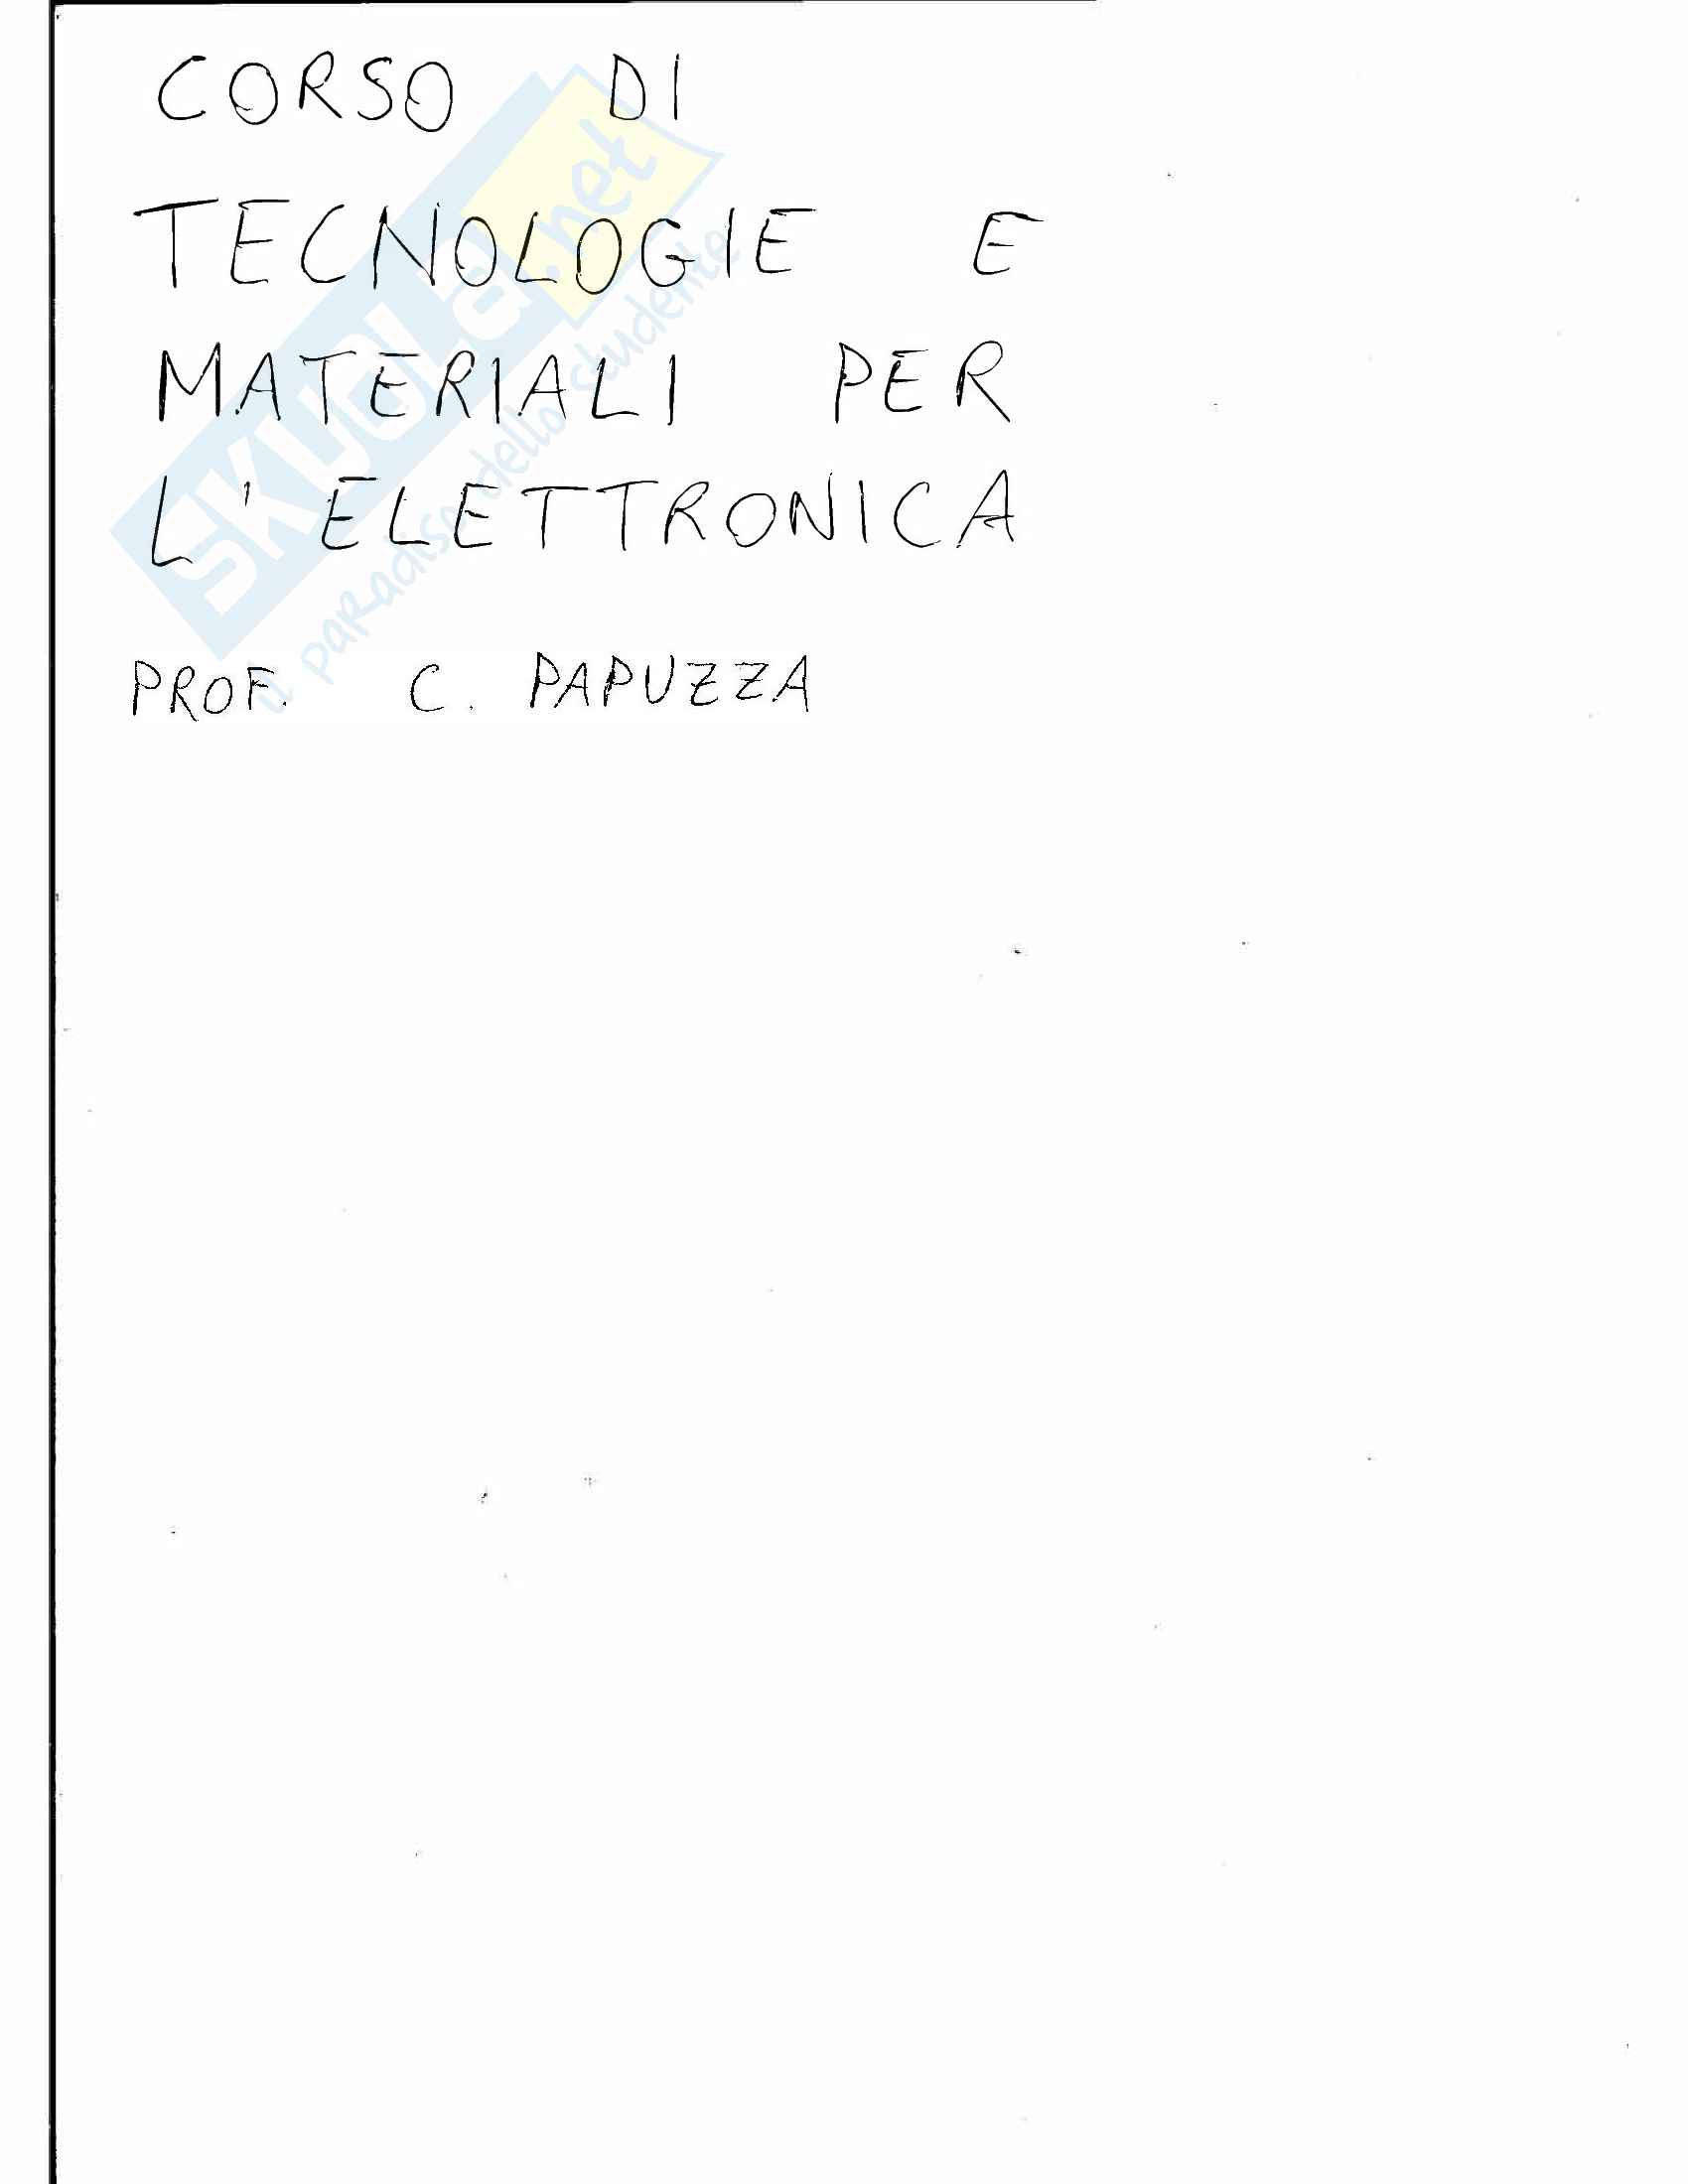 CORSO DI
TECNOLOGIE E
MATERIALI PER
L'ELETTRONICA
PROF. C. PAPUZZA
SKUOLA.net
il paradiso dello studente